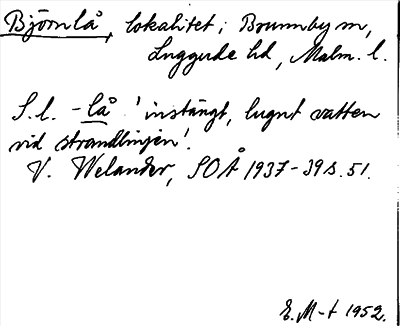 Björnlå, lokalitet i Brunnby sn,
Luggude hd, Malm. l.
S. l. -lå 'instängt, lugnt vatten
vid strandlinjen'.
V. Welander, SOÅ 1937-39 s. 51.
E. M-t 1952.